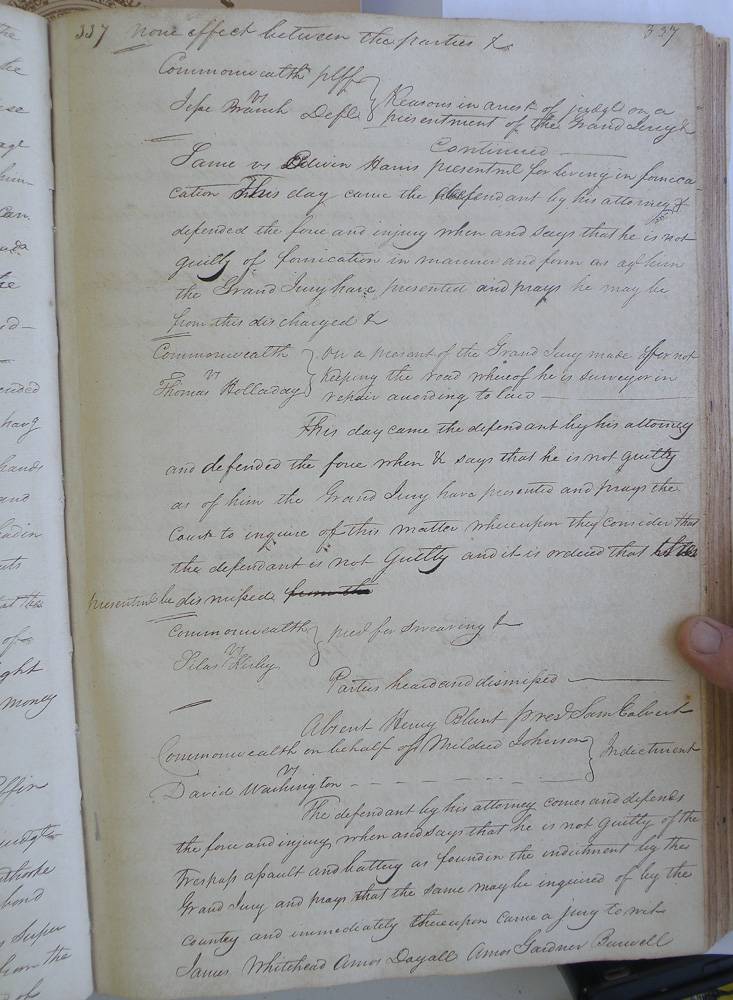 337 none effect between the parties &
337
Commonwealth plff
vs
Jesse Branch Deft
Reasons in arrest of judgt on a
presentment of the Grand Jury &
Continued
Same vs Edwin Harris presentmt for living in fornica-
cation This day came the defendant by his attorney &
defended the force and injury when and says that he is not
guilty of fornication in manner and form as agt him
the Grand Jury have presented and prays he may be
from this discharged &
Commonwealth
vs
Thomas Holladay
on a presmt of the Grand Jury made for not
keeping the road whereof he is surveyor in
repair according to law
This day came the defendant by his attorney
and defended the force when & says that he is not guilty
as of him the Grand Jury have presented and prays the
Court to inquire of this matter whereupon they consider that
the defendant is not Guilty and it is ordered that the
presentmt be dismissed from the
Commonwealth
vs
Silas Kirby
pred for swearing &
Parties heard and dismissed
Absent Henry Blunt presd Sam Calvert
Commonwealth on behalf of Mildred Johnson
vs
David Washington
Indictment
The defendant by his attorney comes and defends
the force and injury when and says that he is not guilty of the
Trespass assault and battery as found in the indictment by the
Grand Jury and prays that the same may be inquired of by the
country and immediately thereupon came a jury to wit
James Whitehead Amos Dayall Amos Gardner Burwell